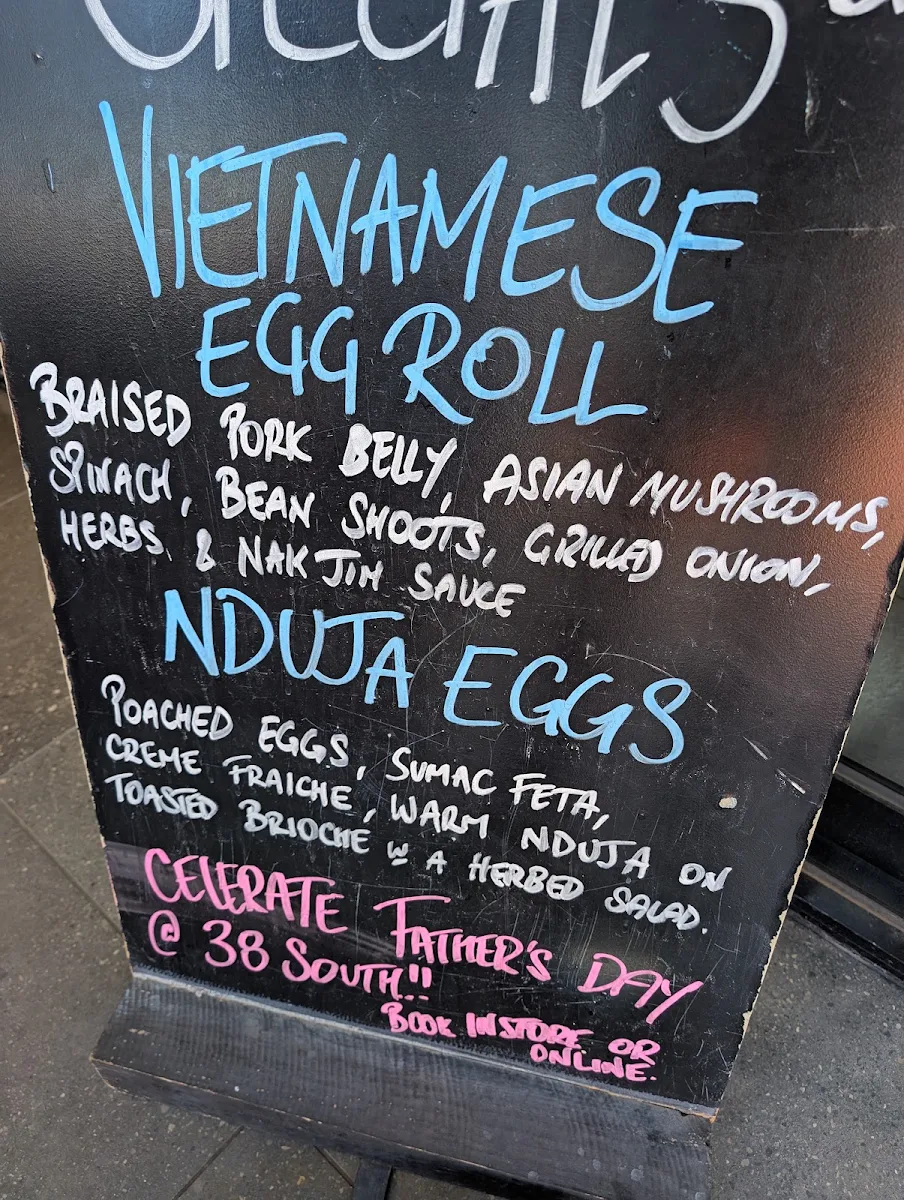 SPECIALS
VIETNAMESE
EGG ROLL
BRAISED PORK BELLY, ASIAN MUSHROOMS,
SPINACH, BEAN SHOOTS, GRILLED ONION,
HERBS & NAK JIM SAUCE
NDUJA EGGS
POACHED EGGS, SUMAC FETA,
CREME FRAICHE, WARM NDUJA ON
TOASTED BRIOCHE W A HERBED SALAD.
CELEBRATE FATHER'S DAY
@ 38 SOUTH!!
BOOK INSTORE OR
ONLINE.